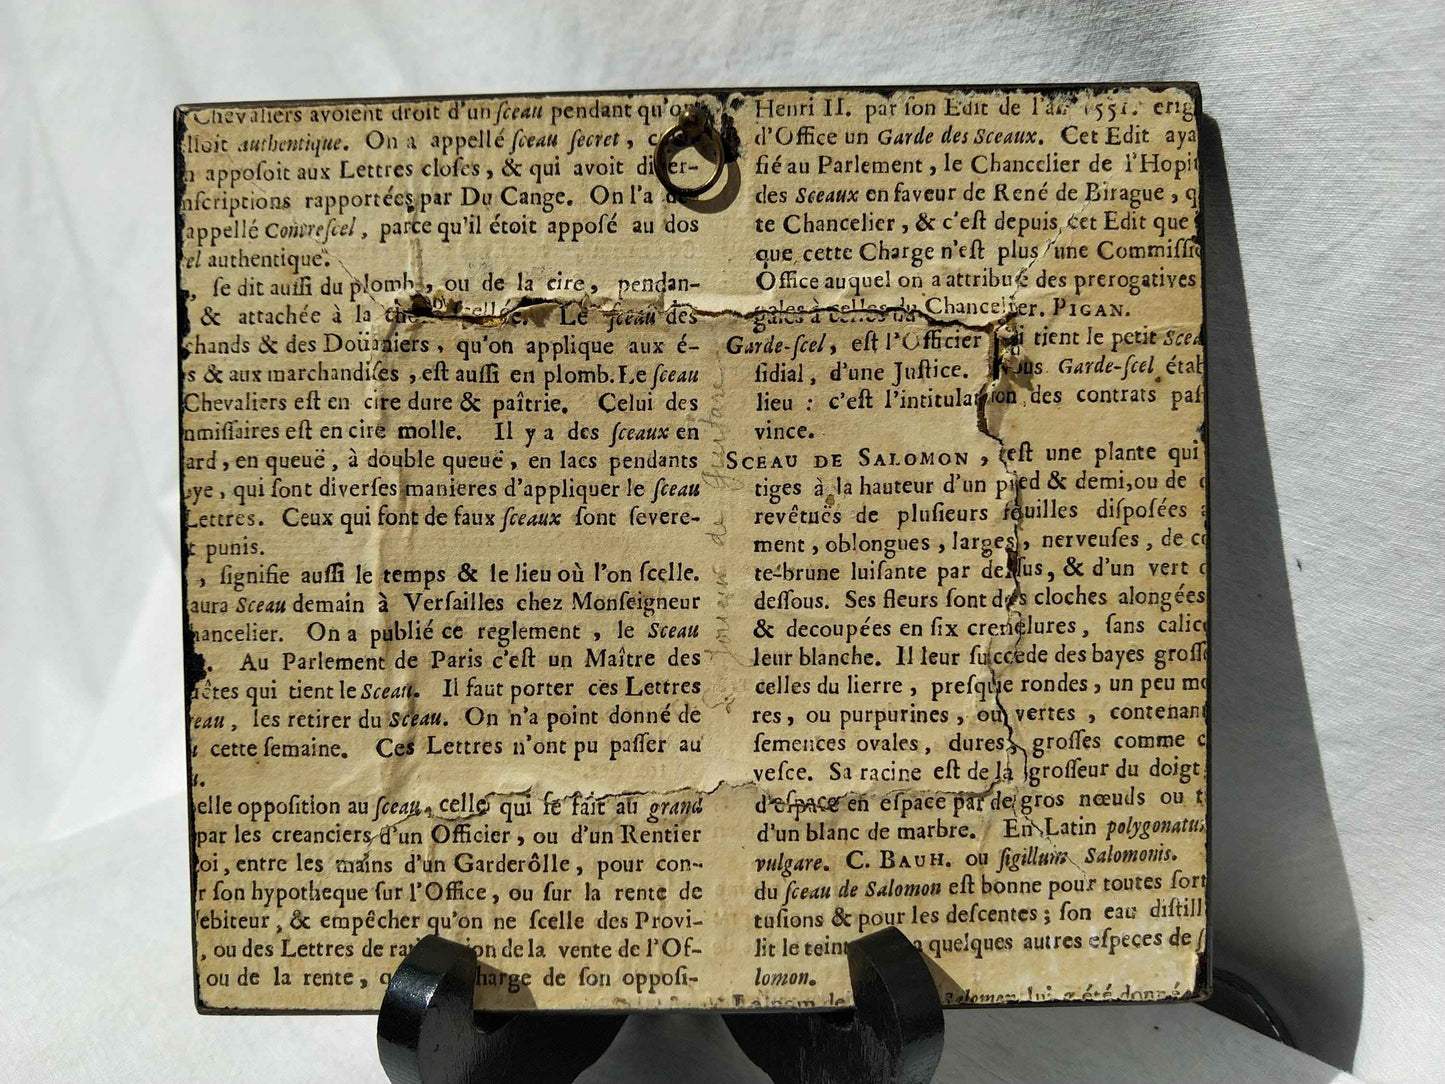 Chevaliers avoient droit d'un ſceau pendant qu'on
authentique. On a appellé ſceau ſecret,
appoſoit aux Lettres cloſes, & qui avoit
nſcriptions rapportées par Du Cange. On l'a
appellé Contreſcel, parce qu'il étoit appoſé au dos
el authentique.
, ſe dit auſſi du plomb, ou de la cire, pendan-
& attachée à la ſcellée. Le ſceau des
chands & des Doüaniers, qu'on applique aux é-
s & aux marchandiſes, eſt auſſi en plomb. Le ſceau
Chevaliers eſt en cire dure & paîtrie. Celui des
nmiſſaires eſt en cire molle. Il y a des ſceaux en
ard, en queuë, à double queuë, en lacs pendants
ye, qui ſont diverſes manieres d'appliquer le ſceau
Lettres. Ceux qui font de faux ſceaux ſont ſevere-
t punis.
, ſignifie auſſi le temps & le lieu où l'on ſcelle.
aura Sceau demain à Verſailles chez Monſeigneur
hancelier. On a publié ce reglement, le Sceau
. Au Parlement de Paris c'eſt un Maître des
uêtes qui tient le Sceau. Il faut porter ces Lettres
eau, les retirer du Sceau. On n'a point donné de
cette ſemaine. Ces Lettres n'ont pu paſſer au
u.
elle oppoſition au ſceau, celle qui ſe fait au grand
par les creanciers d'un Officier, ou d'un Rentier
oi, entre les mains d'un Garderôlle, pour con-
r ſon hypotheque ſur l'Office, ou ſur la rente de
ebiteur, & empêcher qu'on ne ſcelle des Provi-
, ou des Lettres de de la vente de l'Of-
ou de la rente, de ſon oppoſi-
Henri II. par ſon Edit de l'an 1551. erig
d'Office un Garde des Sceaux. Cet Edit aya
fié au Parlement, le Chancelier de l'Hopit
des Sceaux en faveur de René de Birague, q
te Chancelier, & c'eſt depuis cet Edit que
que cette Charge n'eſt plus une Commiſſio
Office auquel on a attribué des prerogatives
gales à celles du Chancelier. PIGAN.
Garde-ſcel, eſt l'Officier qui tient le petit Scea
ſidial, d'une Juſtice. Garde-ſcel étab
lieu : c'eſt l'intitulation des contrats paſ
vince.
SCEAU DE SALOMON, eſt une plante qui
tiges à la hauteur d'un pied & demi, ou de
revêtuës de pluſieurs feuilles diſpoſées
ment, oblongues, larges, nerveuſes, de co
te-brune luiſante par deſſus, & d'un vert
deſſous. Ses fleurs ſont des cloches alongées
& decoupées en ſix crenelures, ſans calic
leur blanche. Il leur ſuccede des bayes groſſ
celles du lierre, preſque rondes, un peu mo
res, ou purpurines, ou vertes, contenan
ſemences ovales, dures, groſſes comme c
veſce. Sa racine eſt de la groſſeur du doigt,
d'eſpace en eſpace par de gros nœuds ou t
d'un blanc de marbre. En Latin polygonatum
vulgare. C. BAUH. ou ſigillum Salomonis.
du ſceau de Salomon eſt bonne pour toutes ſort
tuſions & pour les deſcentes; ſon eau diſtill
lit le teint a quelques autres eſpeces de ſ
lomon.
Salomon lui a été donné